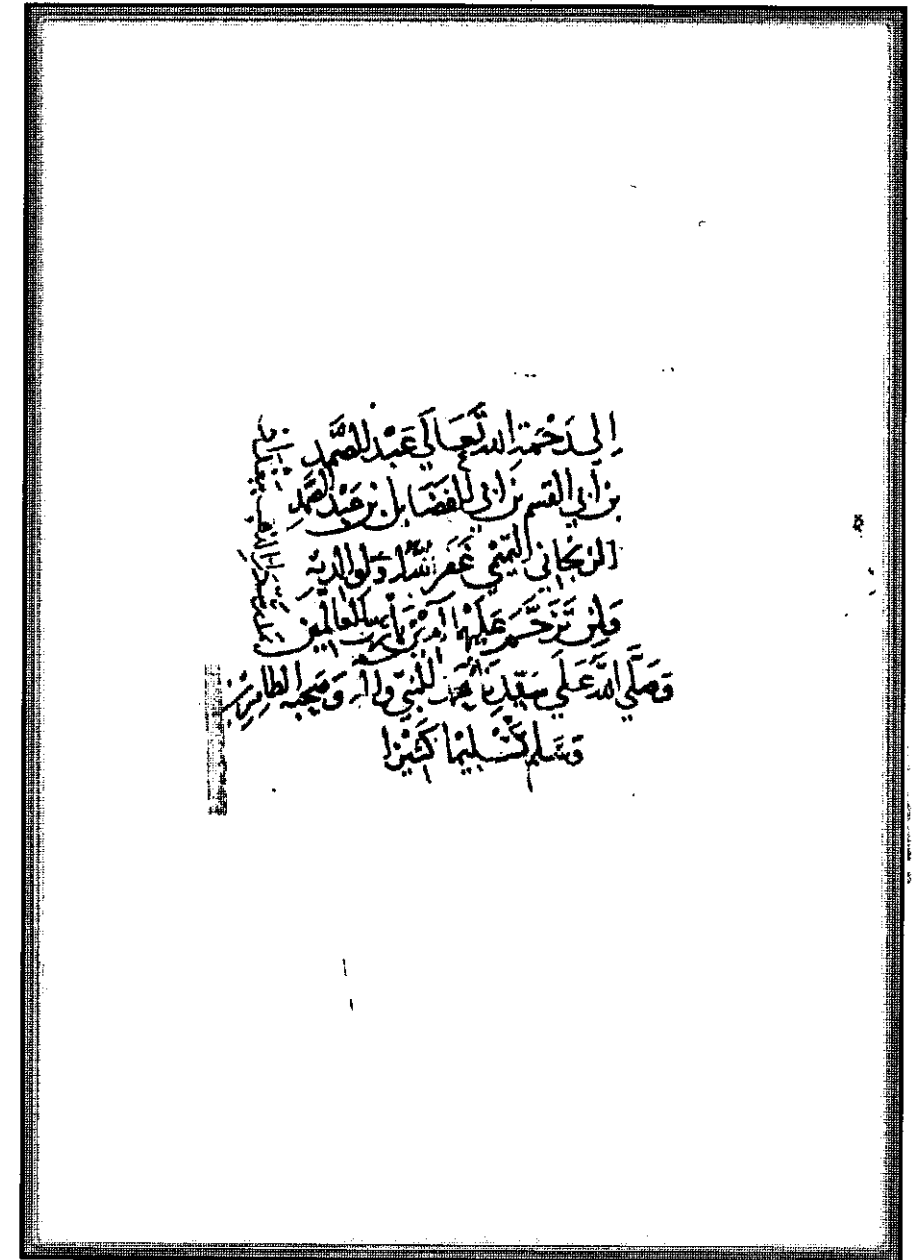 إلى رَحْمَةِ الله تَعَالَى عَبْدُ الصَّمَدِ
بن أبي القسم بن أبي الفضَايل بن عَبْد الصَّمَدِ
الزنجاني التيمي غَفَرَ اللهُ لَهُ وَلِوالِدَيْهِ
وَلِمَن تَرَحَّمَ عَلَيْهِمَا آمِيْنَ يَا رَبَّ العَالَمِيْنَ
وَصَلَّى اللهُ عَلَى سَيِّدِنَا مُحَمَّد النَّبِيّ وَآله وَصَحْبِهِ الطاهِرِيْن
وَسَلَّم تَسْلِيْمًا كَثِيْرًا